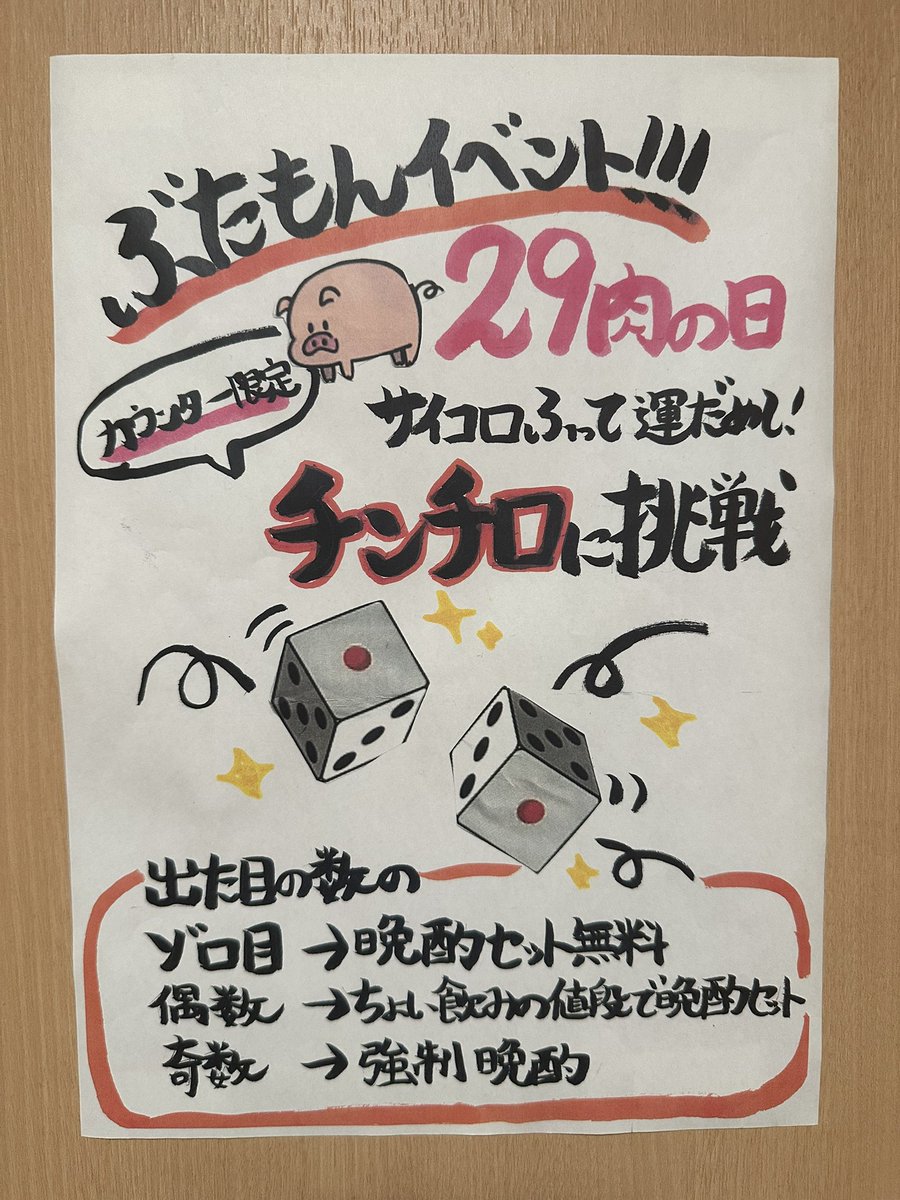 ぶたもんイベント!!!
29肉の日
カウンター限定
サイコロふって運だめし!
チンチロに挑戦
出た目の数の
ゾロ目→晩酌セット無料
偶数→ちょい飲みの値段で晩酌セット
奇数→強制晩酌